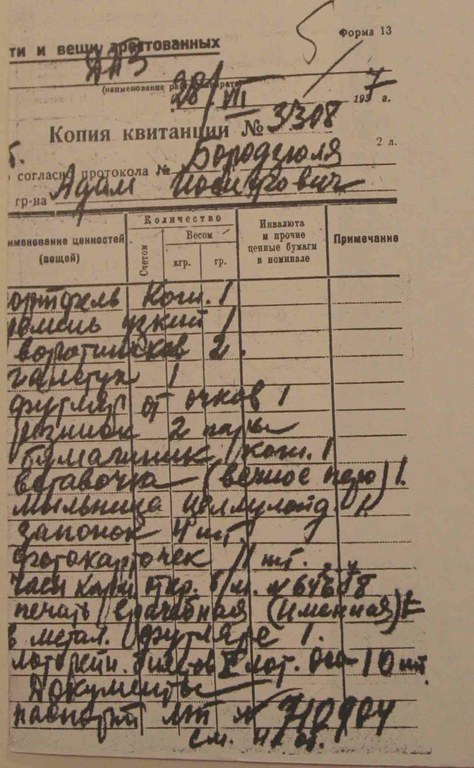 5
Форма 13
ти и вещи арестованных
20/VII 1937 г.
Копия квитанции № 3308
2 л.
согласно протокола № Бородзюля
гр-на Адам Иосифович
именование ценностей (вещей)
Количество
Счетом
Весом
кгр.
гр.
Инвалюта и прочие ценные бумаги в номинале
Примечание
ортфель кож. 1
ремень узкий 1
воротничков 2
галстук 1
футляр от очков 1
резинок 2 пары
бумажник кож. 1
вставочка (вечное перо) 1.
мыльница целлулоид 1.
запонок 4 шт.
фотокарточек 1 шт.
часы карм. откр. б/м. №
печать врачебная (именная)
в метал. футляре 1.
лотерейн. билетов лот. 10 шт.
Документы
паспорт № 710904
см. на об.